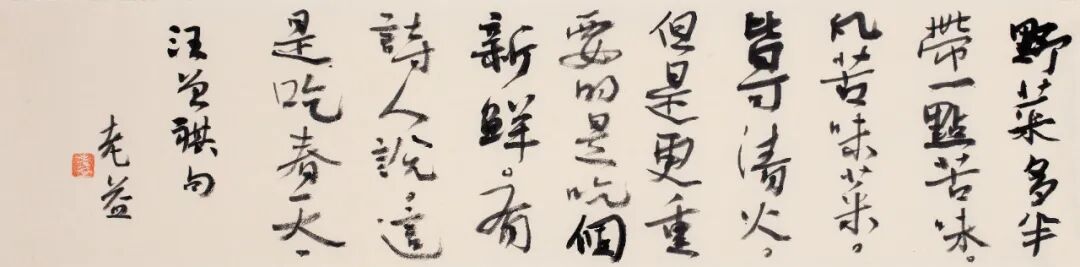 野菜多半
帶一點苦味。
凡苦味菜。
皆可清火。
但是更重
要的是吃個
新鮮。有
詩人說。這
是吃春天。
汪曾祺句
老益